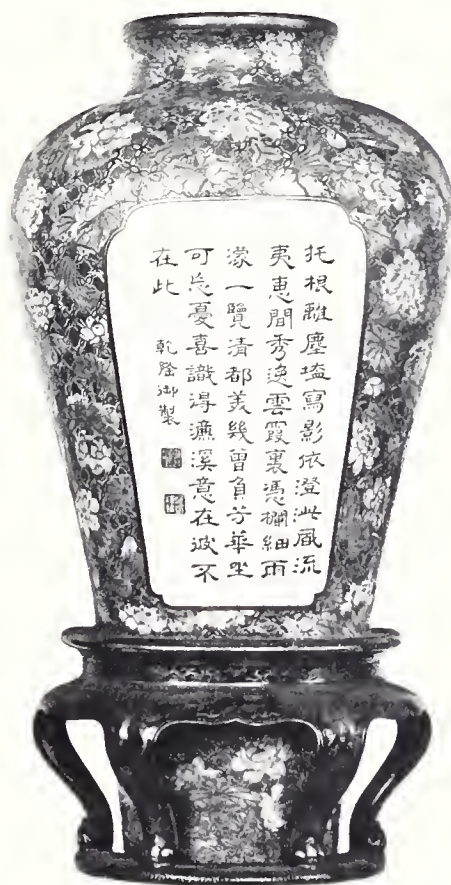 托根離塵壒寫影依澄泚風流
夷惠間秀逸雲霞裏憑欄細雨
濛一覽清都美幾曾負芳華坐
可忘憂喜識得濂溪意在彼不
在此
乾隆御製